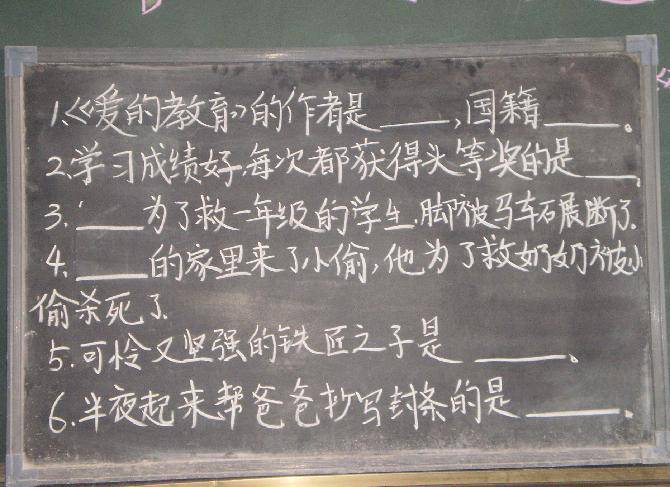 1.《爱的教育》的作者是____,国籍____。
2.学习成绩好,每次都获得头等奖的是____.
3.____为了救一年级的学生,脚被马车碾断了.
4.____的家里来了小偷,他为了救奶奶被小
偷杀死了.
5.可怜又坚强的铁匠之子是____、
6.半夜起来帮爸爸抄写封条的是____.